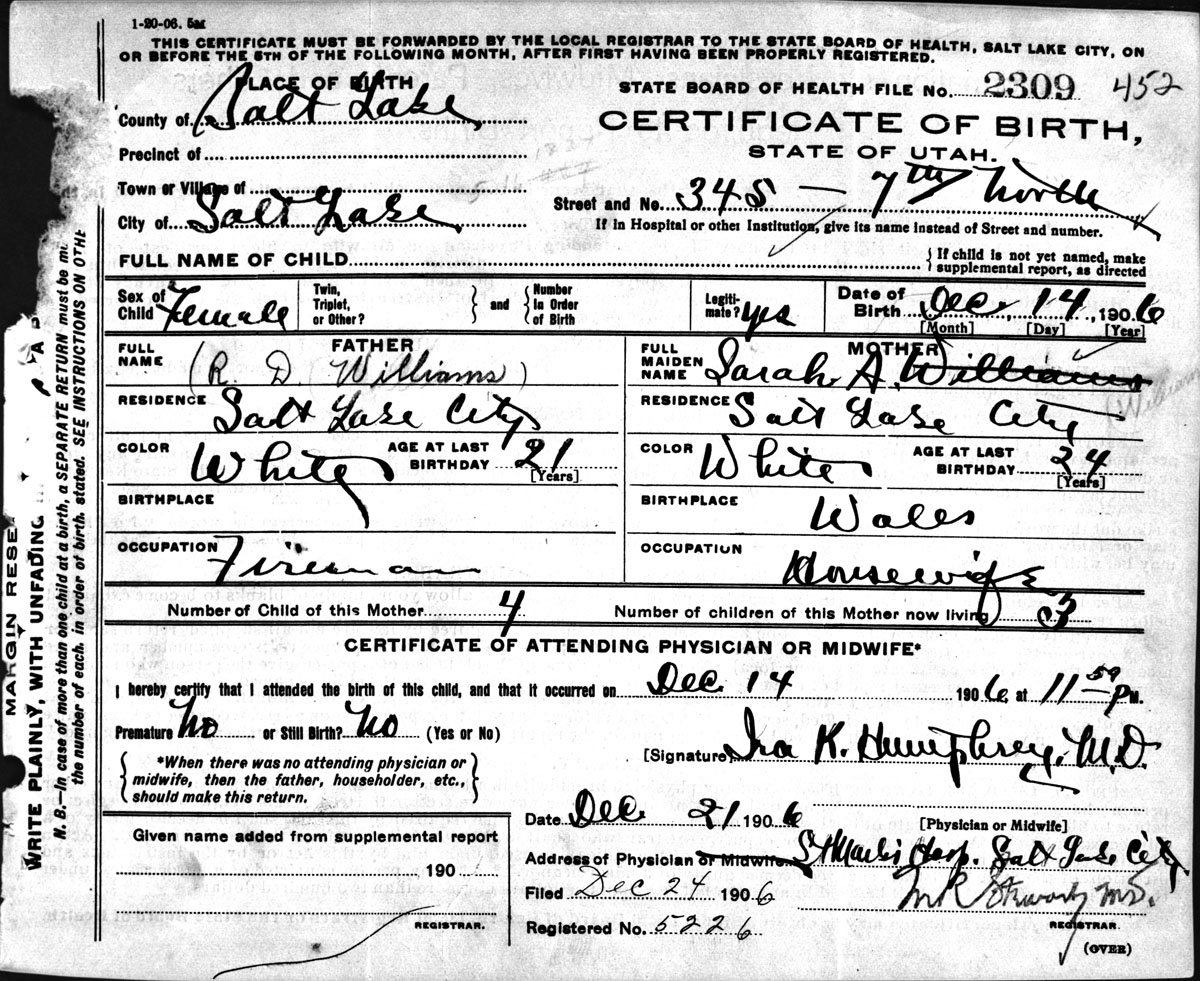 1-20-06. 5m
THIS CERTIFICATE MUST BE FORWARDED BY THE LOCAL REGISTRAR TO THE STATE BOARD OF HEALTH, SALT LAKE CITY, ON
OR BEFORE THE 5TH OF THE FOLLOWING MONTH, AFTER FIRST HAVING BEEN PROPERLY REGISTERED.
PLACE OF BIRTH
County of Salt Lake
Precinct of
Town or Village of
City of Salt Lake
STATE BOARD OF HEALTH FILE No. 2309 452
CERTIFICATE OF BIRTH,
STATE OF UTAH.
Street and No. 345 — 7th North
If in Hospital or other Institution, give its name instead of Street and number.
FULL NAME OF CHILD
If child is not yet named, make
supplemental report, as directed
Sex of Child Female
Twin, Triplet, or Other?
and
Number in Order of Birth
Legiti-mate? yes
Date of Birth Dec. 14, 1906
[Month] [Day] [Year]
FATHER
FULL NAME (R. D. Williams)
RESIDENCE Salt Lake City
COLOR White AGE AT LAST BIRTHDAY 21
[Years]
BIRTHPLACE
OCCUPATION Fireman
MOTHER
FULL MAIDEN NAME Sarah A. Williams
RESIDENCE Salt Lake City
COLOR White AGE AT LAST BIRTHDAY 24
[Years]
BIRTHPLACE Wales
OCCUPATION Housewife
Number of Child of this Mother 4 Number of children of this Mother now living 3
CERTIFICATE OF ATTENDING PHYSICIAN OR MIDWIFE*
I hereby certify that I attended the birth of this child, and that it occurred on Dec. 14 1906 at 11 59 P M.
Premature No or Still Birth? No (Yes or No)
*When there was no attending physician or
midwife, then the father, householder, etc.,
should make this return.
[Signature] Ira K. Humphrey, M.D.
Date Dec. 21 1906
[Physician or Midwife]
Given name added from supplemental report
190
REGISTRAR.
Address of Physician or Midwife St Marks Hosp. Salt Lake City
Filed Dec 24 1906
M R Stewart MD.
Registered No. 5226
REGISTRAR.
(OVER)
MARGIN RESE
WRITE PLAINLY, WITH UNFADING
N. B.—In case of more than one child at a birth, a SEPARATE RETURN must be
the number of each, in order of birth, stated. SEE INSTRUCTIONS ON